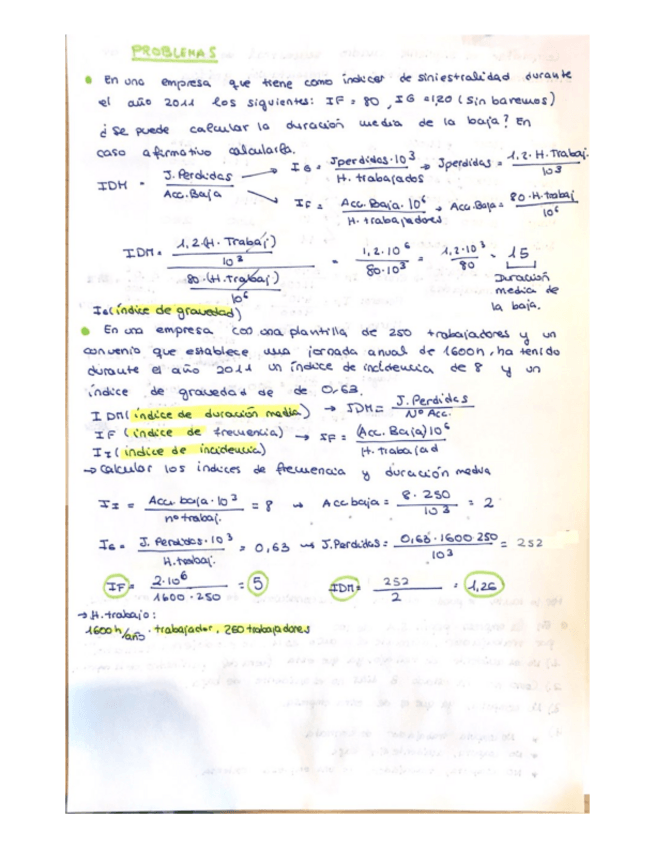 PROBLEMAS
En una empresa que tiene como índices de siniestralidad durante
el año 2011 los siguientes: IF = 80, IG = 1,20 (sin baremos)
¿Se puede calcular la duración media de la baja? En
caso afirmativo calcularla.
IDM = J. Perdidas / Acc. Baja
IG = Jperdidas · 10³ / H. trabajados → Jperdidas = 1,2 · H. Trabaj. / 10³
IF = Acc. Baja · 10⁶ / H. trabajadores → Acc. Baja = 80 · H. trabaj / 10⁶
IDM = (1,2 · (H. Trabaj) / 10³) / (80 · (H. Trabaj) / 10⁶) = 1,2 · 10⁶ / 80 · 10³ = 1,2 · 10³ / 80 = 15
Duración
media de
la baja.
IG (índice de gravedad)
En una empresa con una plantilla de 250 trabajadores y un
convenio que establece una jornada anual de 1600h, ha tenido
durante el año 2011 un índice de incidencia de 8 y un
índice de gravedad de de 0,63.
IDM (índice de duración media) → IDM = J. Perdidas / Nº Acc.
IF (índice de frecuencia) → IF = (Acc. Baja) 10⁶ / H. trabajad
II (índice de incidencia)
→ Calcular los índices de frecuencia y duración media
II = Acc. baja · 10³ / nº trabaj. = 8 → Acc baja = 8 · 250 / 10³ = 2
IG = J. Perdidas · 10³ / H. trabaj. = 0,63 → J. Perdidas = 0,63 · 1600 · 250 / 10³ = 252
IF = 2 · 10⁶ / 1600 · 250 = 5 IDM = 252 / 2 = 1,26
→ H. trabajo:
1600 h/año · trabajador · 250 trabajadores